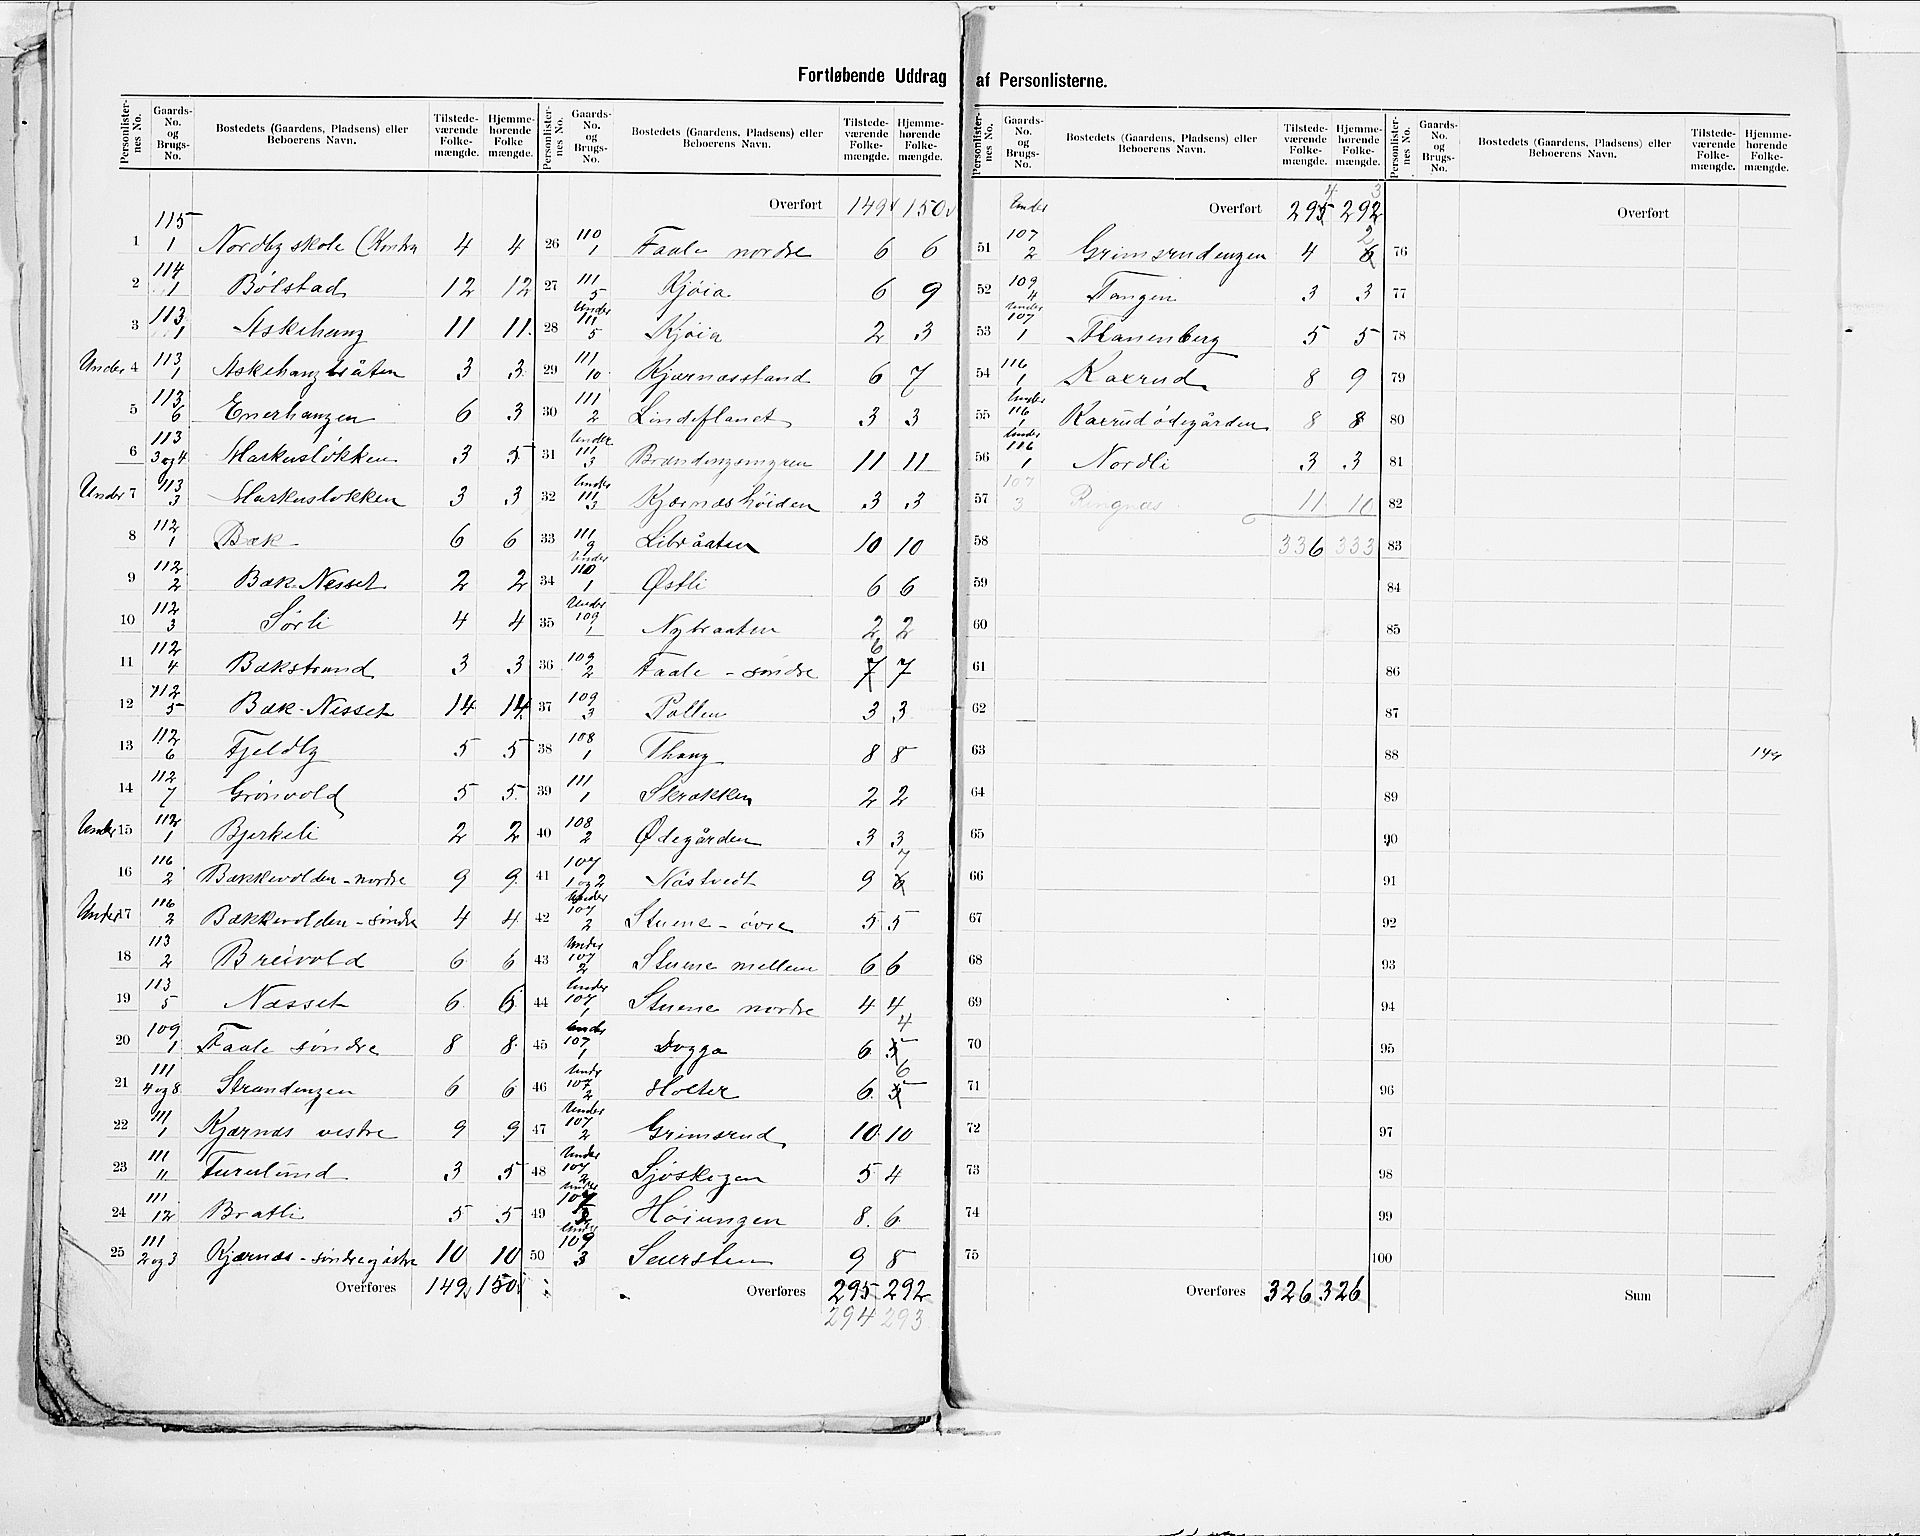 Fortløbende Uddrag af Personlisterne.
Personlisternes No. Gaards-No. og Brugs-No. Bostedets (Gaardens, Pladsens) eller Beboerens Navn. Tilstedeværende Folkemængde. Hjemmehørende Folkemængde.
1 115 1 Nordby skole (Kontra 4 4
2 114 1 Bølstad 12 12
3 113 1 Askehaug 11 11
Under 4 113 1 Askehaugbråten 3 3
5 113 6 Enerhaugen 6 3
6 113 3 og 4 Markusløkken 3 5
Under 7 113 3 Markusløkken 3 3
8 112 1 Bæk 6 6
9 112 2 Bæk-Nesset 2 2
10 112 3 Sørli 4 4
11 112 4 Bækstrand 3 3
12 112 5 Bæk-Nesset 14 14
13 112 6 Fjeldby 5 5
14 112 7 Grønvold 5 5
Under 15 112 1 Bjerkeli 2 2
16 116 2 Bækkevolden-nordre 9 9
Under 17 116 2 Bækkevolden-søndre 4 4
18 113 2 Breivold 6 6
19 113 5 Næsset 6 6
20 109 1 Faale søndre 8 8
21 111 4 og 8 Strandengen 6 6
22 111 1 Kjærnæs vestre 9 9
23 111 11 Furulund 3 5
24 111 12 Bratli 5 5
25 111 2 og 3 Kjærnæs-søndre og østre 10 10
Overføres 149 150
Personlisternes No. Gaards-No. og Brugs-No. Bostedets (Gaardens, Pladsens) eller Beboerens Navn. Tilstedeværende Folkemængde. Hjemmehørende Folkemængde.
Overført 149 150
26 110 1 Faale nordre 6 6
27 111 5 Kjøia 6 9
28 Under 111 5 Kjøia 2 3
29 111 10 Kjærnæsstand 6 7
30 111 2 Lindeflaaet 3 3
31 Under 111 3 Brændengsmyren 11 11
32 Under 111 3 Kjærnæshöiden 3 3
33 111 9 Libråaten 10 10
34 Under 110 1 Østli 6 6
35 Under 109 1 Nybraaten 2 2
36 109 2 Faale-søndre 7 6 7
37 109 3 Pollen 3 3
38 108 1 Thaug 8 8
39 111 1 Skrækken 2 2
40 108 2 Ødegården 3 3
41 107 1 og 2 Nöstvedt 9 6 7
42 Under 107 2 Stuene-övre 5 5
43 Under 107 2 Stuene mellem 6 6
44 Under 107 1 Stuene nordre 4 4
45 Under 107 1 Dogga 6 5 4
46 Under 107 2 Holter 6 5 6
47 Under 107 2 Grimsrud 10 10
48 Under 107 2 Sjöskogen 5 4
49 Under 107 Høiungen 8 6
50 Under 109 3 Sekrsten 9 8
Overføres 295 292
294 293
Personlisternes No. Gaards-No. og Brugs-No. Bostedets (Gaardens, Pladsens) eller Beboerens Navn. Tilstedeværende Folkemængde. Hjemmehørende Folkemængde.
Overført 295 4 292 3
51 Under 107 2 Grimsrudengen 4 6 2
52 109 4 Tangen 3 3
53 Under 107 1 Flanenberg 5 5
54 116 1 Kaxrud 8 9
55 Under 116 1 Kaxrudödegården 8 8
56 Under 116 1 Nordli 3 3
57 107 3 Ringnæs 11 10
58 336 333
59
60
61
62
63
64
65
66
67
68
69
70
71
72
73
74
75
Overføres 326 326
Personlisternes No. Gaards-No. og Brugs-No. Bostedets (Gaardens, Pladsens) eller Beboerens Navn. Tilstedeværende Folkemængde. Hjemmehørende Folkemængde.
Overført
76
77
78
79
80
81
82
83
84
85
86
87
88 144
89
90
91
92
93
94
95
96
97
98
99
100
Sum